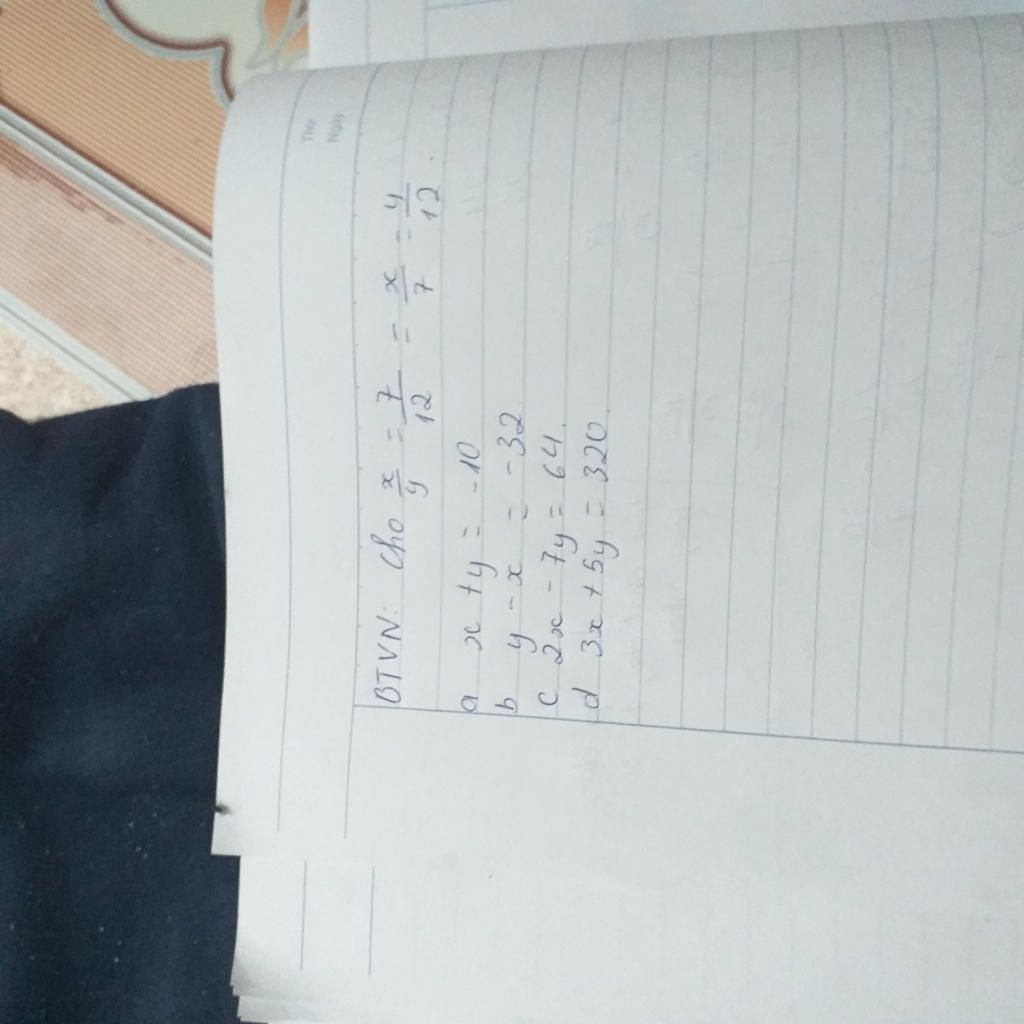 Thứ
Ngày
BTVN: Cho x/y = 7/12 = x/7 = y/12.
a x + y = -10
b y - x = -32.
c 2x - 7y = 64.
d 3x + 5y = 320.